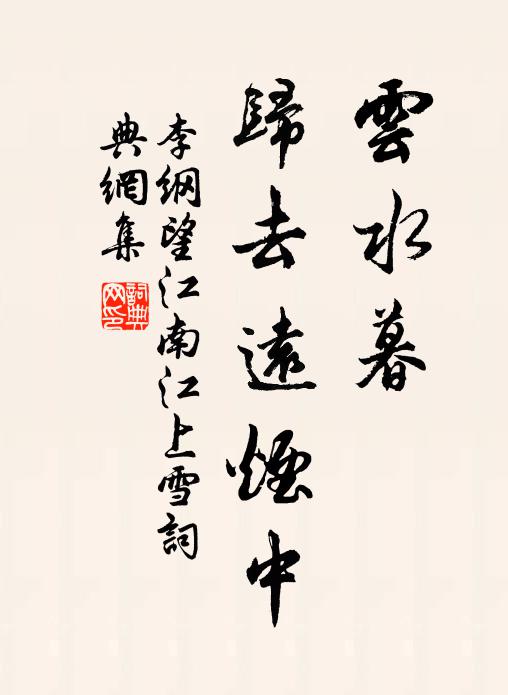 雲水暮
歸去遠煙中
李綱望江南江上雪詞
典網集
詞典
网印